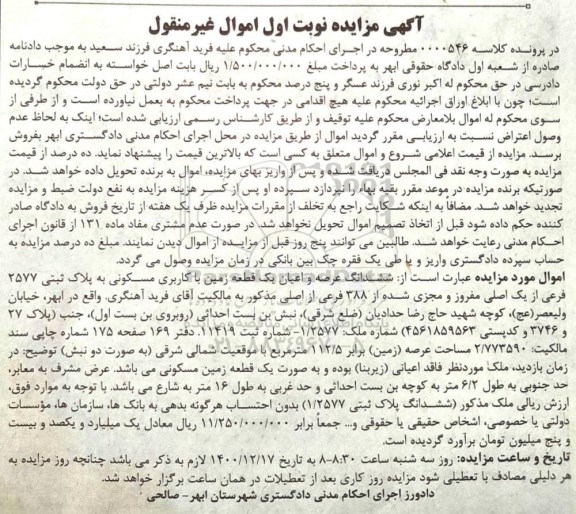 آگهی مزایده نوبت اول اموال غیرمنقول
در پرونده کلاسه ۰۰۰۰۵۴۶ مطروحه در اجرای احکام مدنی محکوم علیه فرید آهنگری فرزند سعید به موجب دادنامه
صادره از شعبه اول دادگاه حقوقی ابهر به پرداخت مبلغ ۱/۵۰۰/۰۰۰/۰۰۰ ریال بابت اصل خواسته به انضمام خسارات
دادرسی در حق محکوم له اکبر نوری فرزند عسگر و پنج درصد محکوم به بابت نیم عشر دولتی در حق دولت محکوم گردیده
است؛ چون با ابلاغ اوراق اجرائیه محکوم علیه هیچ اقدامی در جهت پرداخت محکوم به بعمل نیاورده است و از طرفی از
سوی محکوم له اموال بلامعارض محکوم علیه توقیف و از طریق کارشناس رسمی ارزیابی شده است؛ اینک به لحاظ عدم
وصول اعتراض نسبت به ارزیابی مقرر گردید اموال از طریق مزایده در محل اجرای احکام مدنی دادگستری ابهر بفروش
برسد. مزایده از قیمت اعلامی شروع و اموال متعلق به کسی است که بالاترین قیمت را پیشنهاد نماید. ده درصد از قیمت
مزایده به صورت وجه نقد فی المجلس دریافت شده و پس از واریز بهای مزایده، اموال به برنده تحویل داده خواهد شد. در
صورتیکه برنده مزایده در موعد مقرر بقیه بهاء را نپردازد سپرده او پس از کسر هزینه مزایده به نفع دولت ضبط و مزایده
تجدید خواهد شد. مضافا به اینکه شکایت راجع به تخلف از مقررات مزایده ظرف یک هفته از تاریخ فروش به دادگاه صادر
کننده حکم داده شود قبل از اتخاذ تصمیم اموال تحویل نخواهد شد. در صورت عدم مشتری مفاد ماده ۱۳۱ از قانون اجرای
احکام مدنی رعایت خواهد شد. طالبین می توانند پنج روز قبل از مزایده از اموال دیدن نمایند. مبلغ ده درصد مزایده به
حساب سپرده دادگستری واریز و یا طی یک فقره چک بین بانکی در زمان مزایده وصول می گردد.
اموال مورد مزایده عبارت است از: ششدانگ عرصه و اعیان یک قطعه زمین با کاربری مسکونی به پلاک ثبتی ۲۵۷۷
فرعی از یک اصلی مفروز و مجزی شده از ۳۸۸ فرعی از اصلی مذکور به مالکیت آقای فرید آهنگری، واقع در ابهر، خیابان
ولیعصر(عج)، کوچه شهید حاج رضا حدادیان (ضلع شرقی)، نبش بن بست احداثی (روبروی بن بست اول)، جنب (پلاک ۲۷
و ۳۷۴۶ و کدپستی ۴۵۶۱۸۵۹۵۶۳) شماره ملک: ۱/۲۵۷۷- شماره ثبت ۱۱۴۱۹، دفتر ۱۶۹ صفحه ۱۷۵ شماره چاپی سند
مالکیت: ۲/۷۷۳۵۹۰ مساحت عرصه (زمین) برابر ۱۱۲/۵ مترمربع با موقعیت شمالی شرقی (به صورت دو نبش) توضیح: در
زمان بازدید، ملک موردنظر فاقد اعیانی (زیربنا) بوده و به صورت یک قطعه زمین مسکونی می باشد. عرض مشرف به معابر،
حد جنوبی به طول ۶/۲ متر به کوچه بن بست احداثی و حد غربی به طول ۱۶ متر به شارع می باشد. با توجه به موارد فوق،
ارزش ریالی ملک مذکور (ششدانگ پلاک ثبتی ۱/۲۵۷۷) بدون احتساب هرگونه بدهی به بانک ها، سازمان ها، مؤسسات
دولتی یا خصوصی، اشخاص حقیقی یا حقوقی و... جمعاً برابر ۱۱/۲۵۰/۰۰۰/۰۰۰ ریال معادل یک میلیارد و یکصد و بیست
و پنج میلیون تومان برآورد گردیده است.
تاریخ و ساعت مزایده: روز سه شنبه ساعت ۸:۳۰-۸ به تاریخ ۱۴۰۰/۱۲/۱۷ لازم به ذکر می باشد چنانچه روز مزایده به
هر دلیلی مصادف با تعطیلی شود مزایده روز کاری بعد از تعطیلات در همان ساعت برگزار خواهد شد.
دادورز اجرای احکام مدنی دادگستری شهرستان ابهر- صالحی